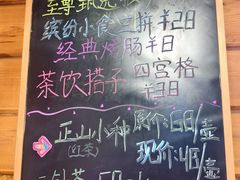 至尊甄选
缤纷小食三拼 ¥28
经典烤肠 ¥8
茶饮搭子 四宫格
¥38
正山小种 原价:68/壶
(红茶) 现价:48/壶